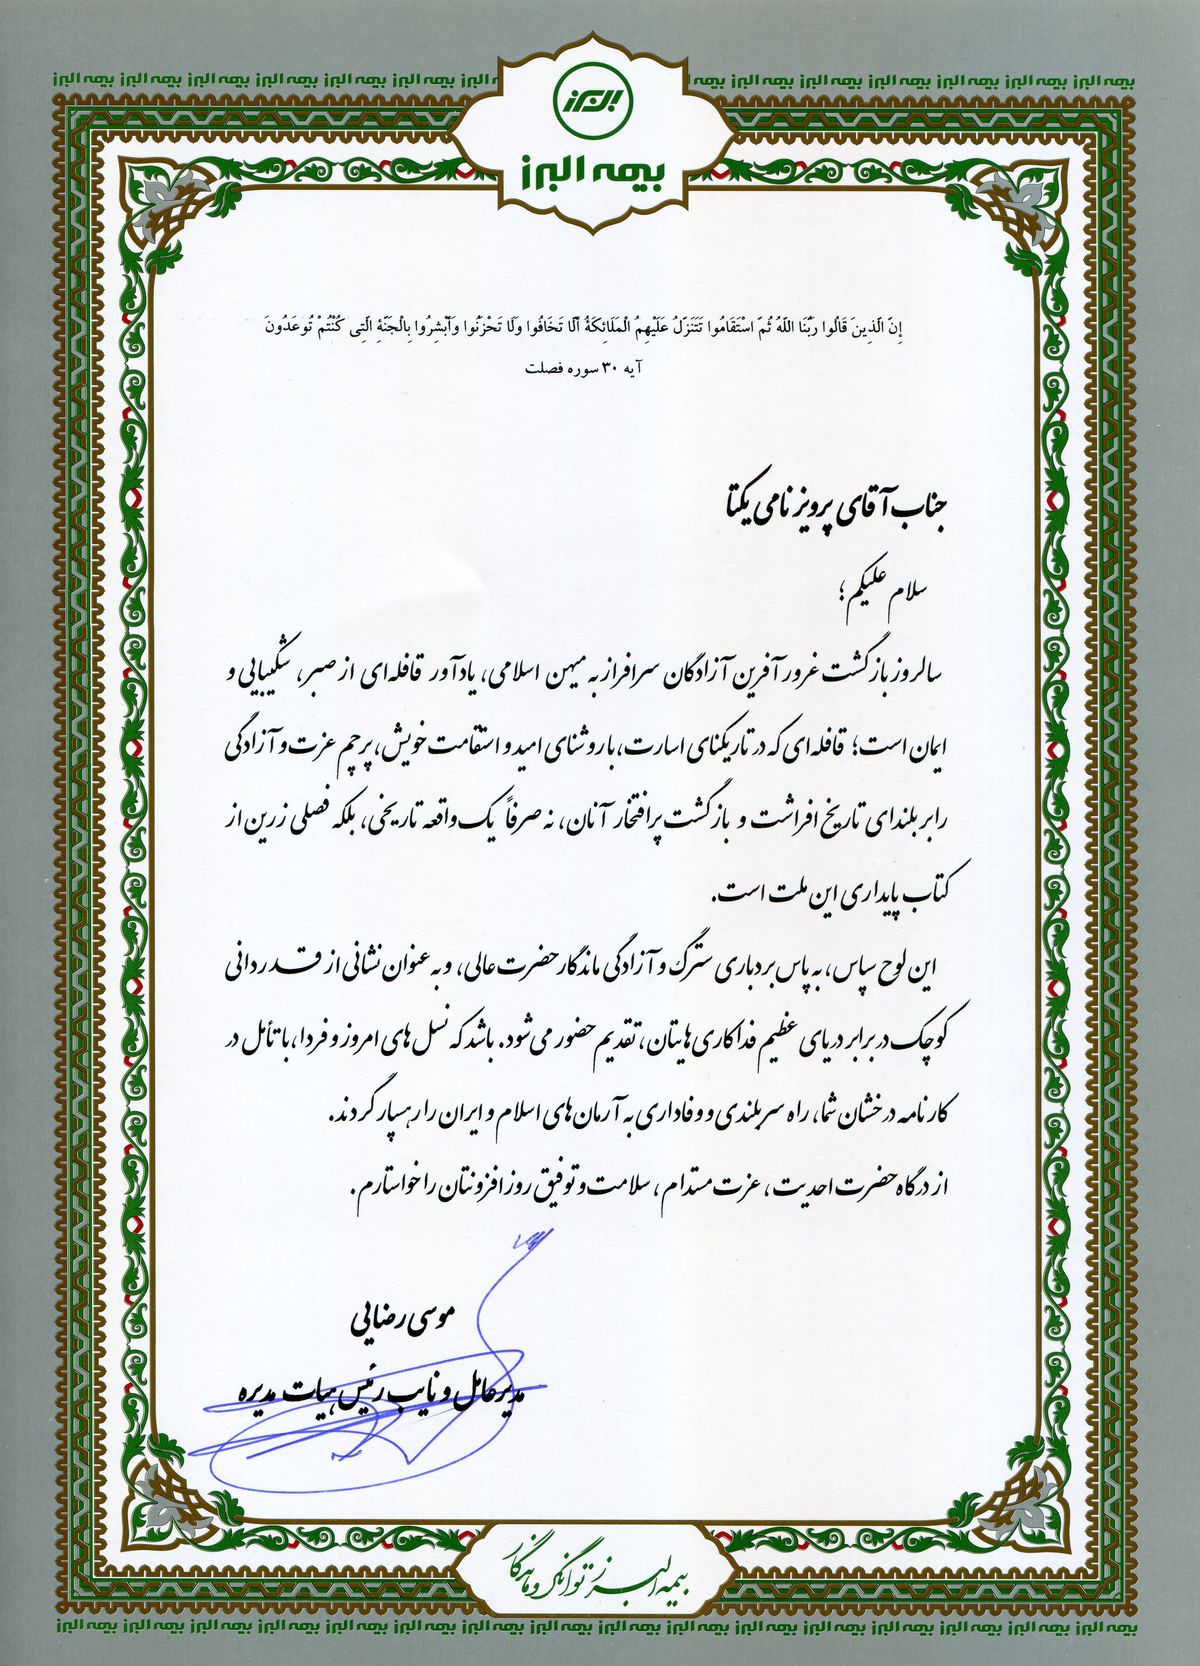 بیمه البرز بیمه البرز بیمه البرز بیمه البرز بیمه البرز بیمه البرز بیمه البرز بیمه البرز بیمه البرز بیمه البرز بیمه البرز بیمه البرز بیمه البرز
البرز
بیمه البرز
إِنَّ الَّذِینَ قَالُوا رَبُّنَا اللَّهُ ثُمَّ اسْتَقَامُوا تَتَنَزَّلُ عَلَیْهِمُ الْمَلَائِکَةُ أَلَّا تَخَافُوا وَلَا تَحْزَنُوا وَأَبْشِرُوا بِالْجَنَّةِ الَّتِی کُنْتُمْ تُوعَدُونَ
آیه ۳۰ سوره فصلت
جناب آقای پرویز نامی یکتا
سلام علیکم؛
سالروز بازگشت غرور آفرین آزادگان سرافراز به میهن اسلامی، یادآور قافله‌ای از صبر، شکیبایی و
ایمان است؛ قافله‌ای که در تاریکنای اسارت، با روشنای امید و استقامت خویش، پرچم عزت و آزادگی
را بر بلندای تاریخ افراشت و بازگشت پرافتخار آنان، نه صرفاً یک واقعه تاریخی، بلکه فصلی زرین از
کتاب پایداری این ملت است.
این لوح سپاس، به پاس بردباری سترگ و آزادگی ماندگار حضرت عالی، و به عنوان نشانی از قدردانی
کوچک در برابر دریای عظیم فداکاری‌هایتان، تقدیم حضور می‌شود. باشد که نسل‌های امروز و فردا، با تأمل در
کارنامه درخشان شما، راه سربلندی و وفاداری به آرمان‌های اسلام و ایران را رهسپار گردند.
از درگاه حضرت احدیت، عزت مستدام، سلامت و توفیق روز افزونتان را خواستارم.
موسی رضایی
مدیرعامل و نایب رئیس هیات مدیره
بیمه البرز توانگر و ماندگار
بیمه البرز بیمه البرز بیمه البرز بیمه البرز بیمه البرز بیمه البرز بیمه البرز بیمه البرز بیمه البرز بیمه البرز بیمه البرز بیمه البرز بیمه البرز بیمه البرز بیمه البرز بیمه البرز